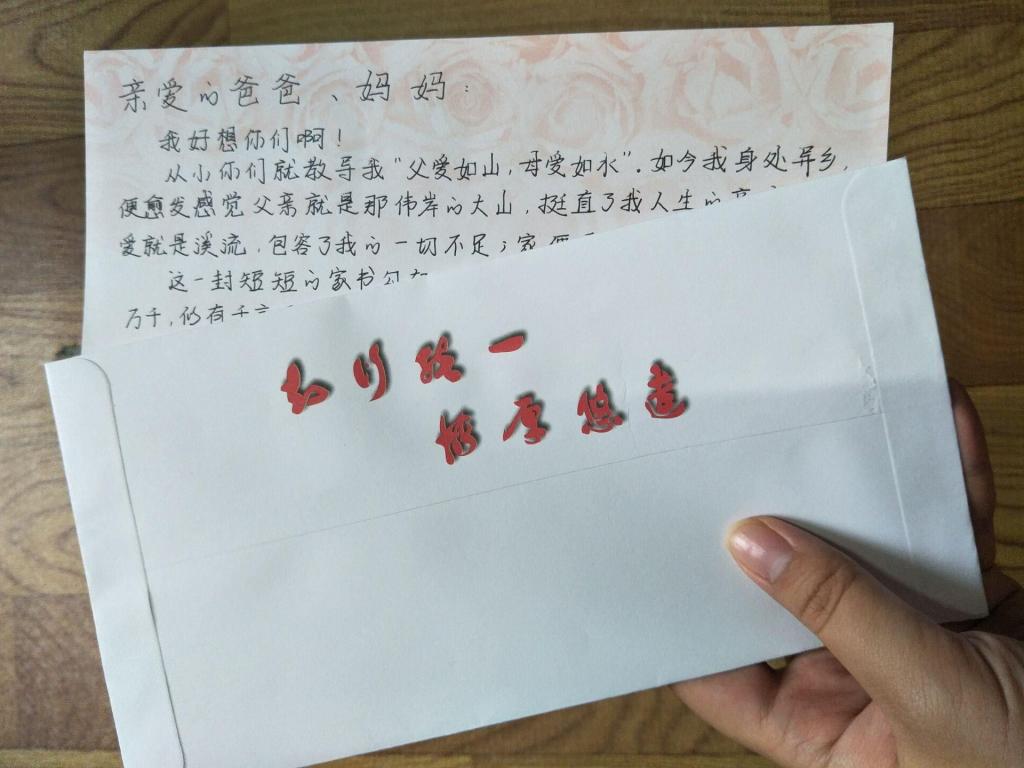 亲爱的爸爸、妈妈：
我好想你们啊！
从小你们就教导我“父爱如山，母爱如水”。如今我身处异乡，
便愈发感觉父亲就是那伟岸的大山，挺直了我人生的
爱就是溪流，包容了我的一切不足；家
这一封短短的家书
万千，仍有千
知行统一
博厚悠远